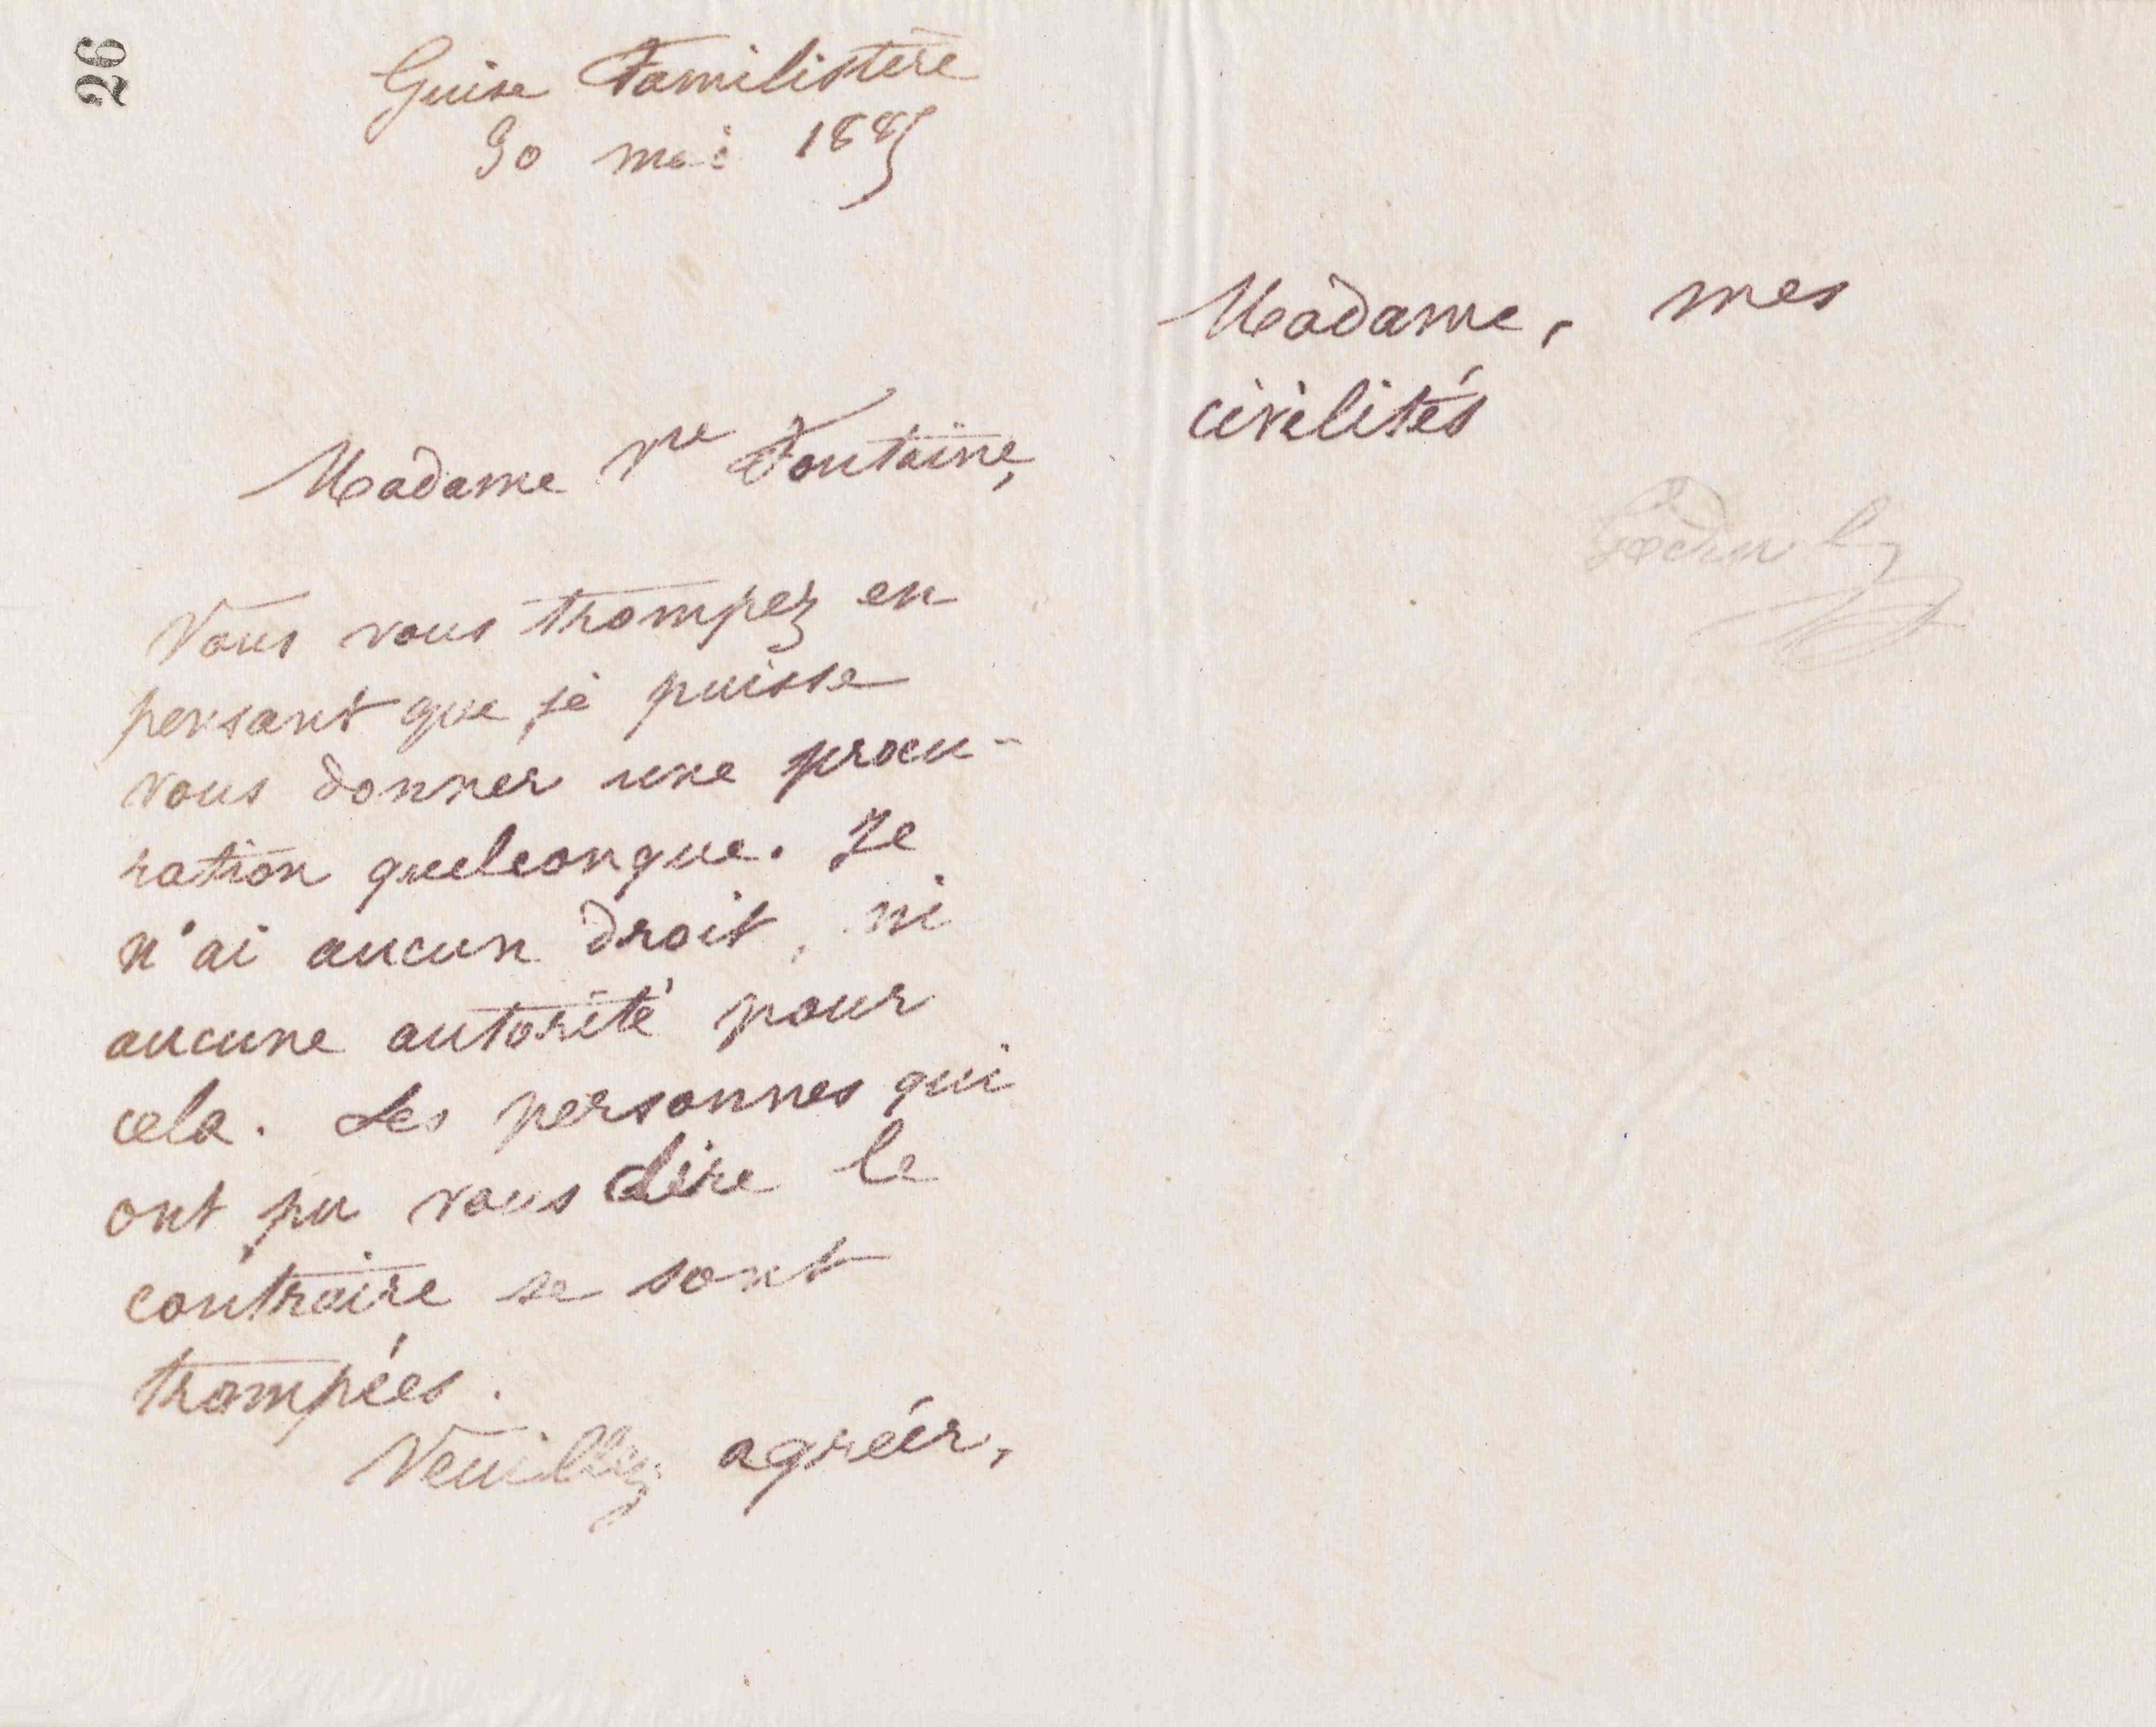 26
Guise Familistère
30 mai 1885
Madame Vve Fontaine,
Vous vous trompez en
pensant que je puisse
vous donner une procu-
ration quelconque. Je
n'ai aucun droit, ni
aucune autorité pour
cela. Les personnes qui
ont pu vous dire le
contraire se sont
trompées.
Veuillez agréer,
Madame, mes
civilités
Godin